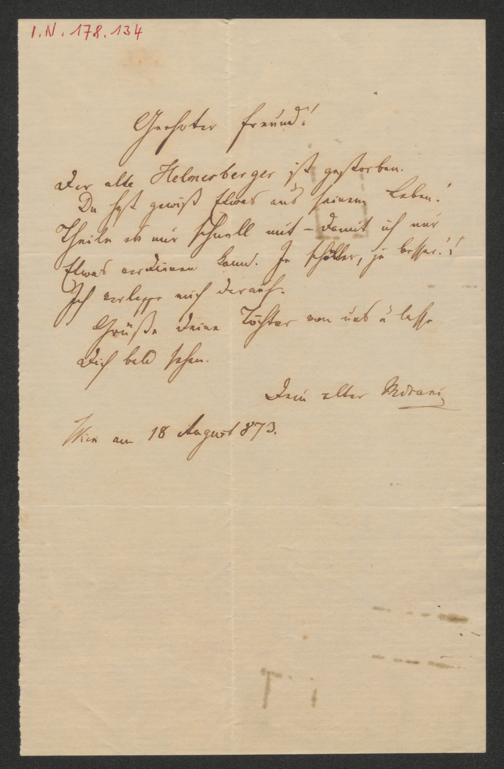 I.N. 178.134
Geehrter Freund!
Der alte Helmesberger ist gestorben.
Du hast gewiß Etwas aus seinem Leben!
Theile es mir schnell mit – damit ich mir
Etwas verdienen kann. Je schneller, je besser!!
Ich verlasse mich darauf.
Grüße Deine Töchter von uns u lasse
Dich bald sehen.
Dein alter
Wien am 18 August 873.